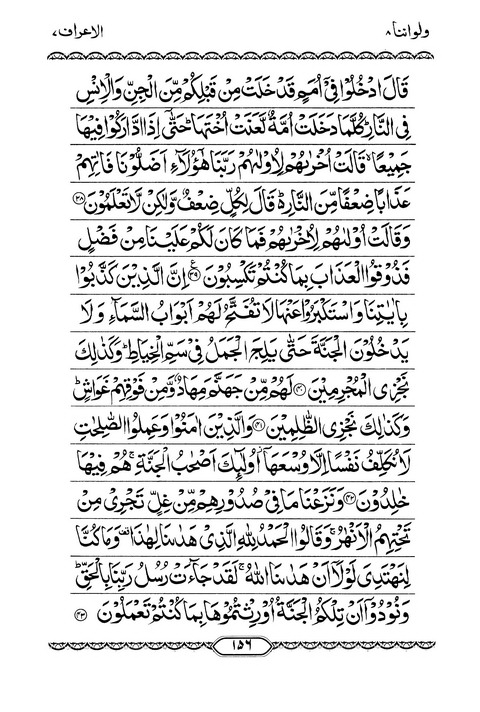 ولواننا ٨ الاعراف ٧
قَالَ ادْخُلُوْا فِیْۤ اُمَمٍ قَدْ خَلَتْ مِنْ قَبْلِكُمْ مِّنَ الْجِنِّ وَالْاِنْسِ
فِی النَّارِ ؕ كُلَّمَا دَخَلَتْ اُمَّةٌ لَّعَنَتْ اُخْتَهَا ؕ حَتّٰۤی اِذَا ادَّارَكُوْا فِیْهَا
جَمِیْعًا ۙ قَالَتْ اُخْرٰىهُمْ لِاُوْلٰىهُمْ رَبَّنَا هٰۤؤُلَآءِ اَضَلُّوْنَا فَاٰتِهِمْ
عَذَابًا ضِعْفًا مِّنَ النَّارِ ؕ قَالَ لِكُلٍّ ضِعْفٌ وَّلٰكِنْ لَّا تَعْلَمُوْنَ ﴿٣٨﴾
وَقَالَتْ اُوْلٰىهُمْ لِاُخْرٰىهُمْ فَمَا كَانَ لَكُمْ عَلَیْنَا مِنْ فَضْلٍ
فَذُوْقُوا الْعَذَابَ بِمَا كُنْتُمْ تَكْسِبُوْنَ ﴿٣٩﴾ ع اِنَّ الَّذِیْنَ كَذَّبُوْا
بِاٰیٰتِنَا وَاسْتَكْبَرُوْا عَنْهَا لَا تُفَتَّحُ لَهُمْ اَبْوَابُ السَّمَآءِ وَلَا
یَدْخُلُوْنَ الْجَنَّةَ حَتّٰی یَلِجَ الْجَمَلُ فِیْ سَمِّ الْخِیَاطِ ؕ وَكَذٰلِكَ
نَجْزِی الْمُجْرِمِیْنَ ﴿٤٠﴾ لَهُمْ مِّنْ جَهَنَّمَ مِهَادٌ وَّمِنْ فَوْقِهِمْ غَوَاشٍ ؕ
وَكَذٰلِكَ نَجْزِی الظّٰلِمِیْنَ ﴿٤١﴾ وَالَّذِیْنَ اٰمَنُوْا وَعَمِلُوا الصّٰلِحٰتِ
لَا نُكَلِّفُ نَفْسًا اِلَّا وُسْعَهَاۤ ؗ اُولٰٓىِٕكَ اَصْحٰبُ الْجَنَّةِ ۚ هُمْ فِیْهَا
خٰلِدُوْنَ ﴿٤٢﴾ وَنَزَعْنَا مَا فِیْ صُدُوْرِهِمْ مِّنْ غِلٍّ تَجْرِیْ مِنْ
تَحْتِهِمُ الْاَنْهٰرُ ۚ وَقَالُوا الْحَمْدُ لِلّٰهِ الَّذِیْ هَدٰىنَا لِهٰذَا ۫ وَمَا كُنَّا
لِنَهْتَدِیَ لَوْلَاۤ اَنْ هَدٰىنَا اللّٰهُ ۚ لَقَدْ جَآءَتْ رُسُلُ رَبِّنَا بِالْحَقِّ ؕ
وَنُوْدُوْۤا اَنْ تِلْكُمُ الْجَنَّةُ اُوْرِثْتُمُوْهَا بِمَا كُنْتُمْ تَعْمَلُوْنَ ﴿٤٣﴾
١٥٦